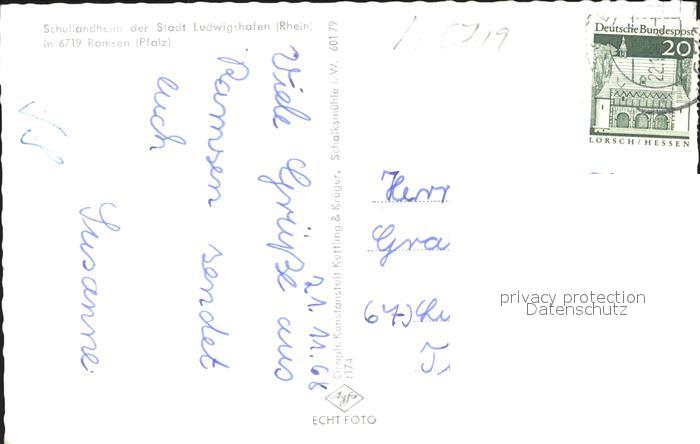 Schullandheim der Stadt Ludwigshafen (Rhein)
in 6719 Ramsen (Pfalz)
21. 11. 68
Viele Grüße aus
Ramsen sendet
euch
Susanne
Graph. Kunstanstalt Kettling & Krüger, Schalksmühle i. W. 60179
1174
ECHT FOTO
Deutsche Bundespost
20
LORSCH/HESSEN
Herr
Gra
673
privacy protection
Datenschutz